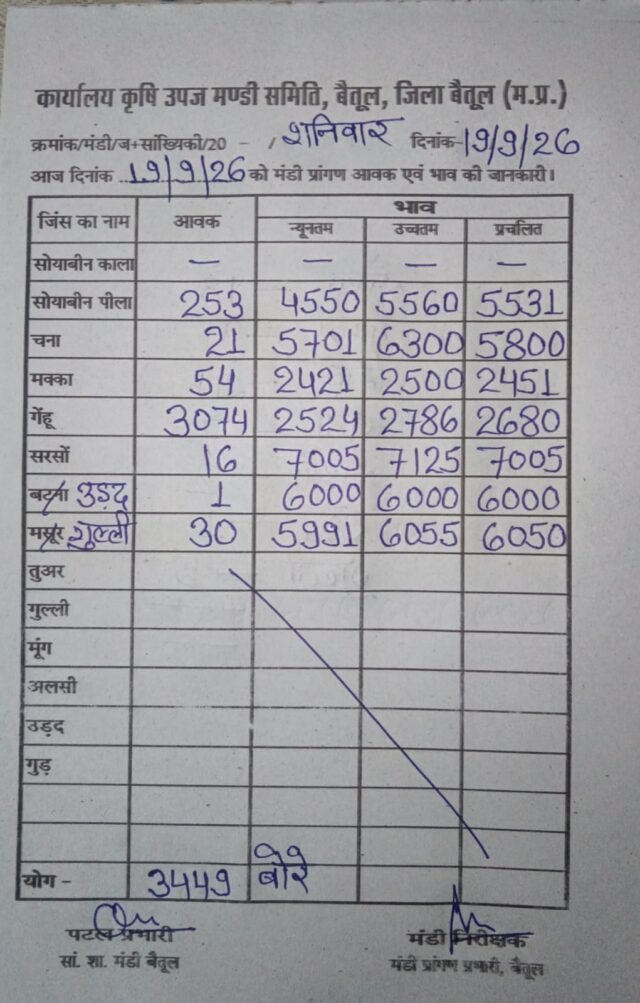 कार्यालय कृषि उपज मण्डी समिति, बैतूल, जिला बैतूल (म.प्र.)
क्रमांक/मंडी/ज+सांख्यिकी/20 - / शनिवार दिनांक-19/9/26
आज दिनांक 19/9/26 को मंडी प्रांगण आवक एवं भाव की जानकारी।
जिंस का नाम आवक भाव
न्यूनतम उच्चतम प्रचलित
सोयाबीन काला — — — —
सोयाबीन पीला 253 4550 5560 5531
चना 21 5701 6300 5800
मक्का 54 2421 2500 2451
गेंहू 3074 2524 2786 2680
सरसों 16 7005 7125 7005
बटना उड़द 1 6000 6000 6000
मसूर गुल्ली 30 5991 6055 6050
तुअर
गुल्ली
मूंग
अलसी
उड़द
गुड़
योग - 3449 बोरे
पटल प्रभारी मंडी निरीक्षक
सां. शा. मंडी बैतूल मंडी प्रांगण प्रभारी, बैतूल